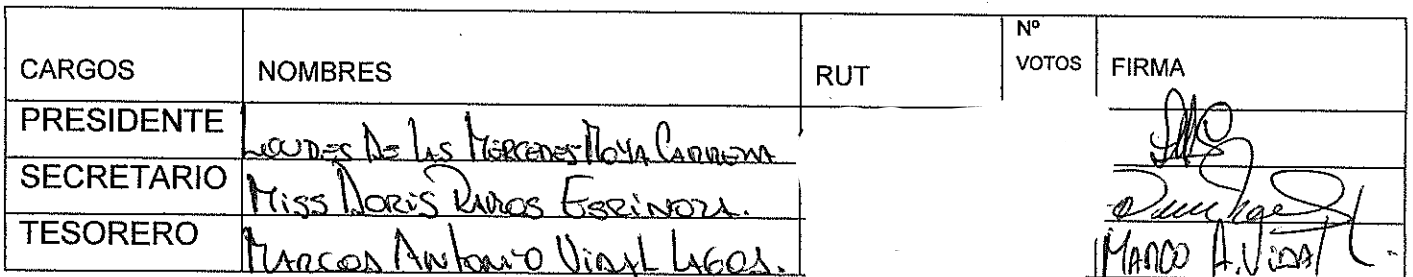 CARGOS NOMBRES RUT Nº VOTOS FIRMA
PRESIDENTE LOUDES DE LAS MERCEDES MOYA
SECRETARIO MISS DORIS RAMOS ESPINOZA.
TESORERO MARCOS ANTONIO VIDAL LAGOS. MARCO A. VIDAL